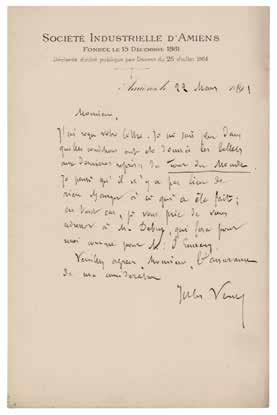 SOCIÉTÉ INDUSTRIELLE D'AMIENS
FONDÉE LE 15 DÉCEMBRE 1861
Déclarée d'utilité publique par Décret du 25 Juillet 1864
Amiens le 22 Mars 1891
Monsieur,
J'ai reçu votre lettre. Je ne sais pas dans
quelles conditions ont été donnés les billets
aux dernières reprises du Tour du Monde
Je pense qu'il n'y a pas lieu de
rien changer à ce qui a été fait;
en tout cas, je vous prie de vous
adresser à M. , qui fera pour
moi comme pour M. d'Ennery.
Veuillez agréer, Monsieur, l'assurance
de ma considération
Jules Verne